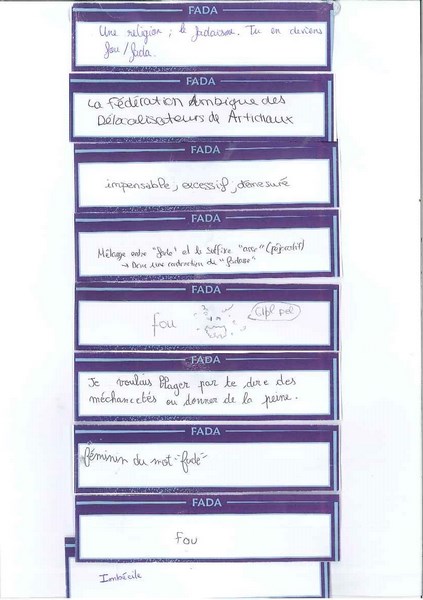 FADA
Une religion ; le fadaisme. Tu en deviens
fou/fada.
FADA
La Fédération Ambigue des
Délocalisateurs de Artichaux
FADA
impensable, excessif, démesuré
FADA
Mélange entre "fade" et le suffixe "asse" (péjoratif)
→ Donc une contraction de "fadasse"
FADA
fou
FADA
Je voulais blager pas te dire des
méchancetés ou donner de la peine.
FADA
féminin du mot "fade"
FADA
Fou
Imbécile